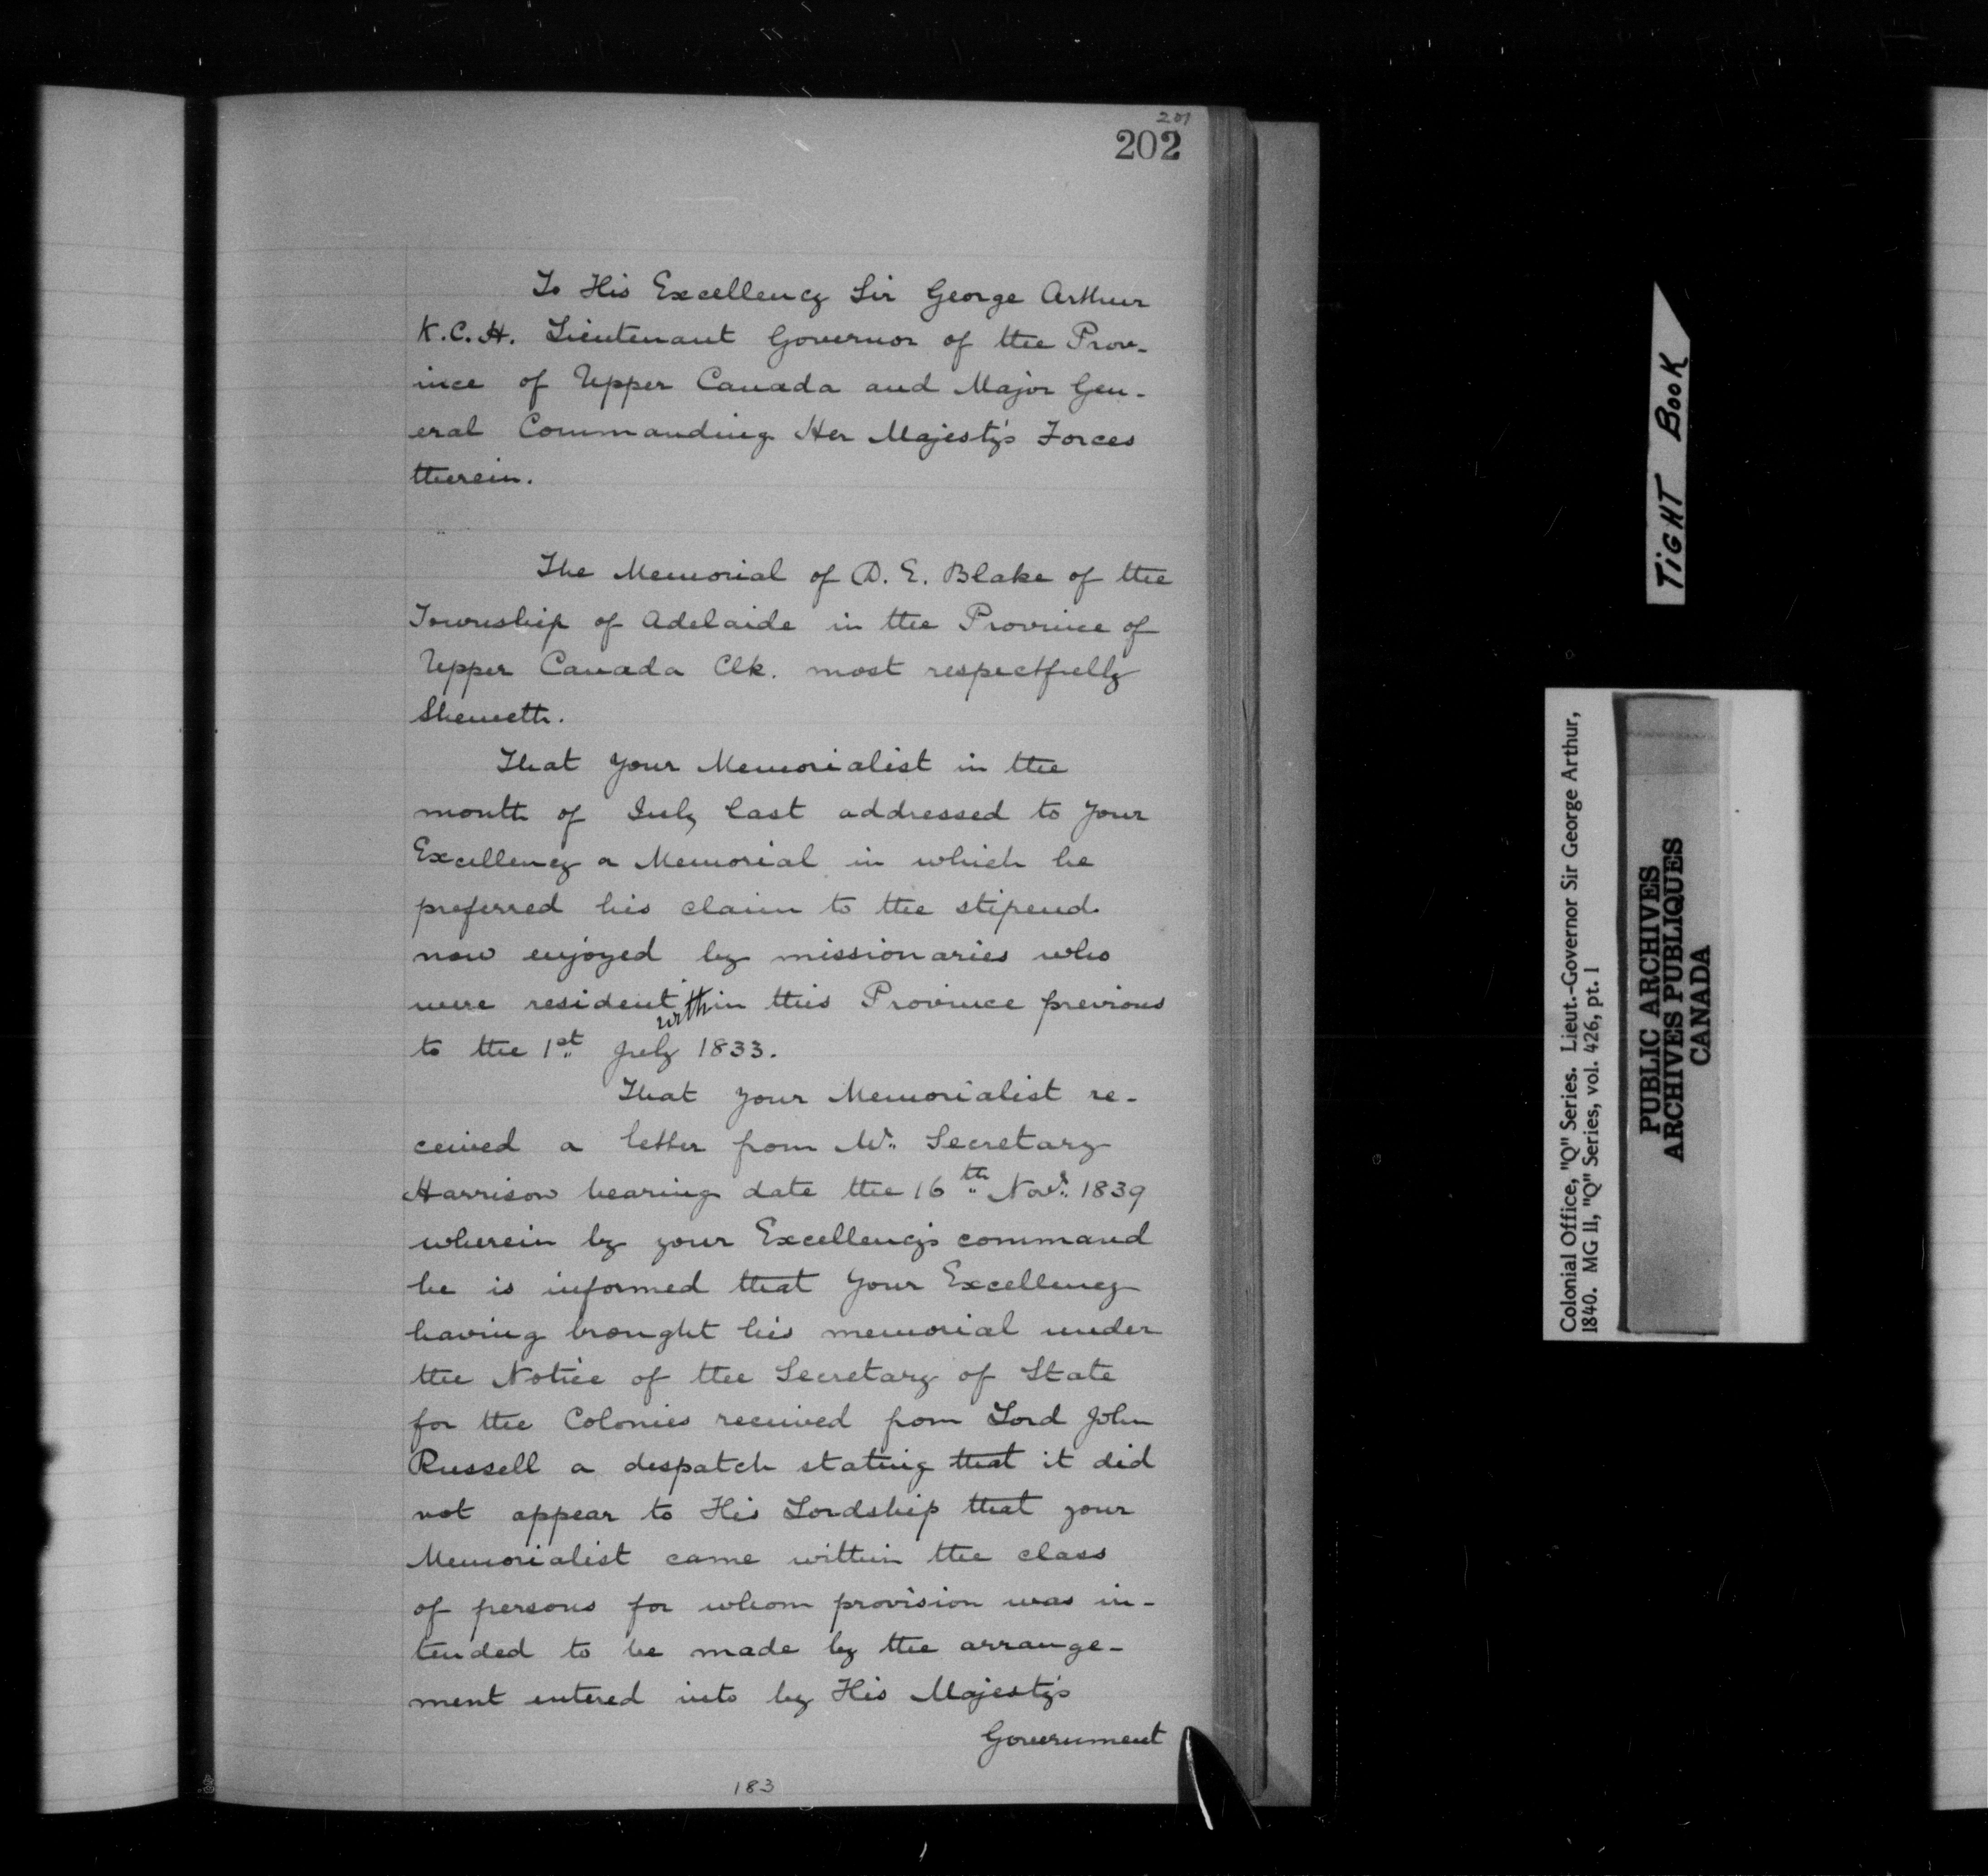 201
202
To His Excellency Sir George Arthur
K.C.H. Lieutenant Governor of the Prov-
ince of Upper Canada and Major Gen-
eral Commanding Her Majesty's Forces
therein.
The Memorial of D. E. Blake of the
Township of Adelaide in the Province of
Upper Canada Clk. most respectfully
Sheweth.
That your Memorialist in the
month of July last addressed to your
Excellency a Memorial in which he
preferred his claim to the stipend
now enjoyed by missionaries who
were resident within this Province previous
to the 1st July 1833.
That your Memorialist re-
ceived a letter from Mr. Secretary
Harrison bearing date the 16th Novr. 1839
wherein by your Excellency's command
he is informed that your Excellency
having brought his memorial under
the Notice of the Secretary of State
for the Colonies received from Lord John
Russell a despatch stating that it did
not appear to His Lordship that your
Memorialist came within the class
of persons for whom provision was in-
tended to be made by the arrange-
ment entered into by His Majesty's
Government
183
TIGHT BOOK
Colonial Office, "Q" Series. Lieut.-Governor Sir George Arthur,
1840. MG 11, "Q" Series, vol. 426, pt. 1
PUBLIC ARCHIVES
ARCHIVES PUBLIQUES
CANADA